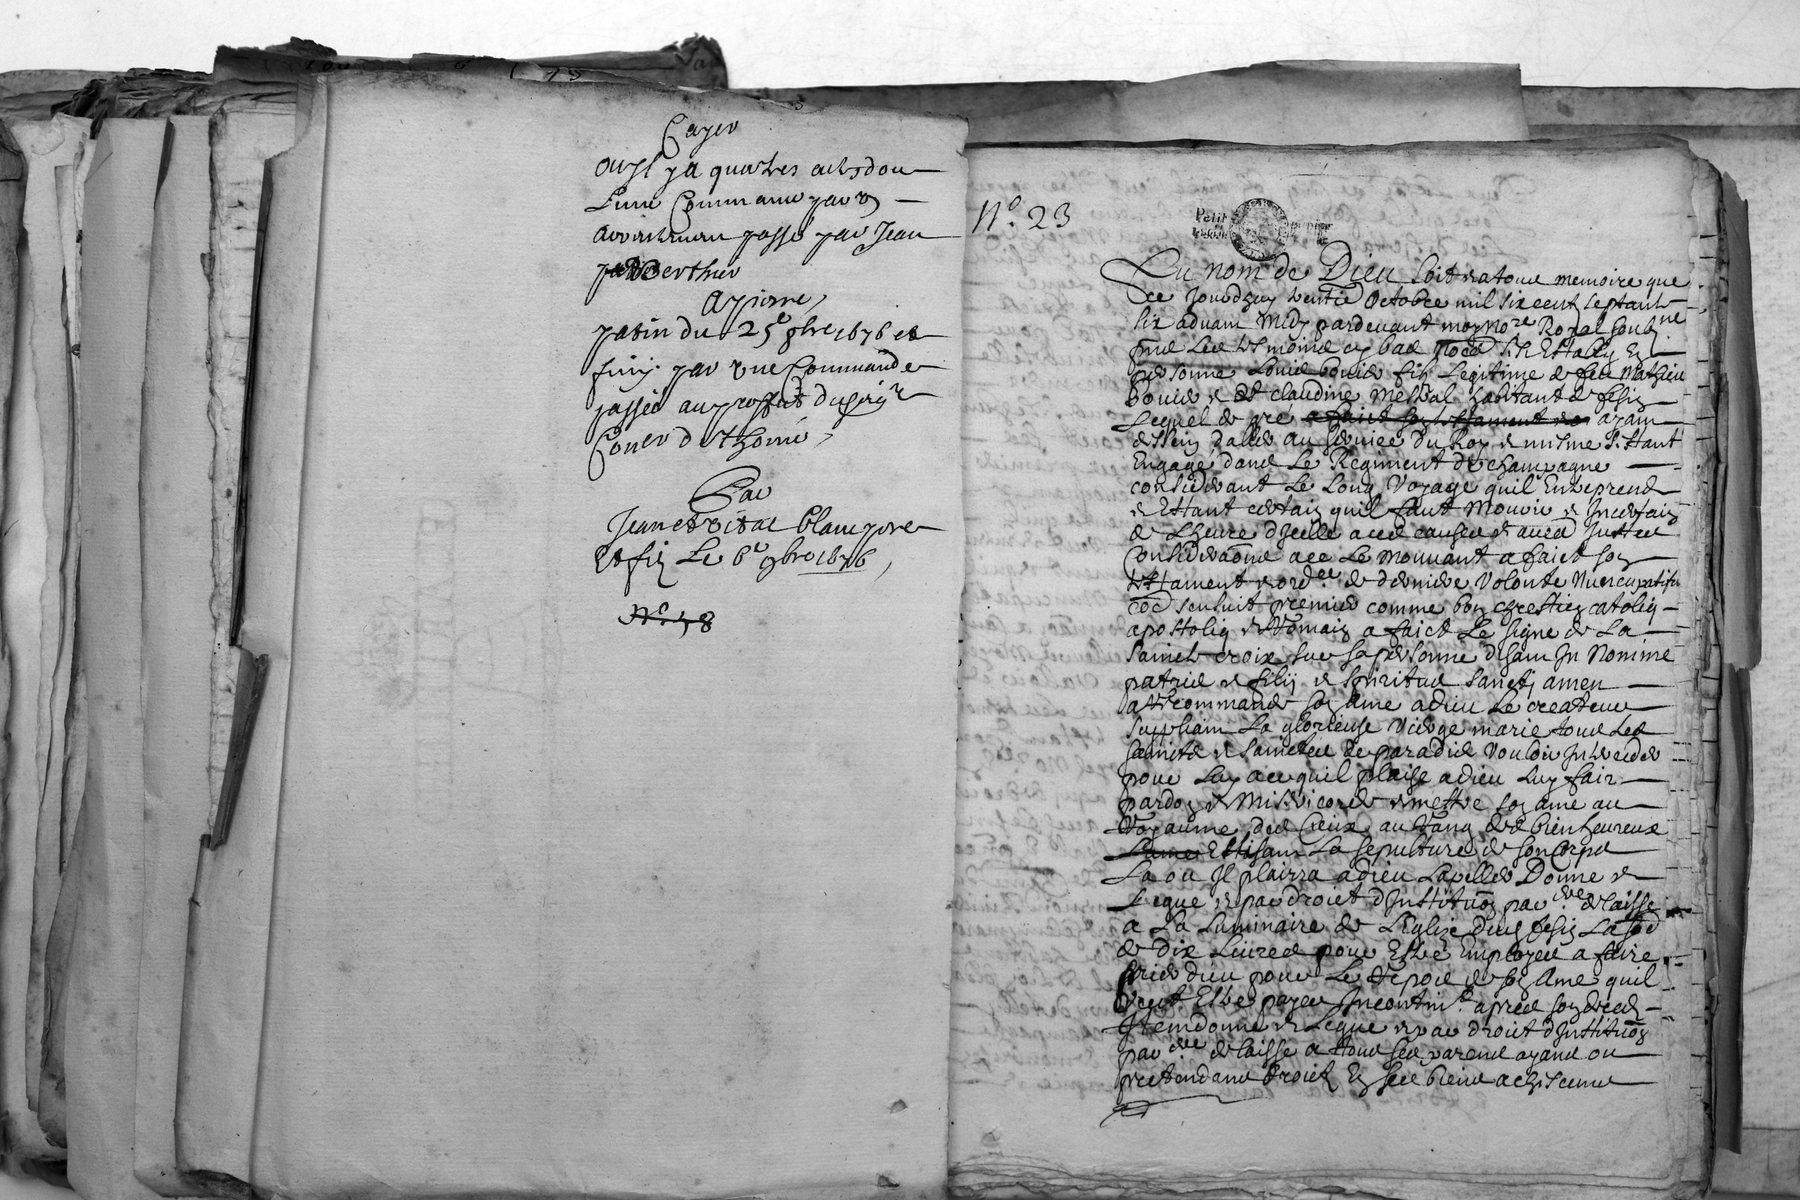 Cayer
ou Il y a quattres actes dou
Lune Commance par vn
passé par Jean
Berthier
a pierre
patin du 25e 8bre 1676 et
finy par vne Commande
passée au proffit du
Par
Jean et vital Blancpere
Et fin Le 6e 9bre 1676
No 58
No. 23
Petit papier
Au nom de Dieu soit et a tous memoire que
ce Jourdhuy Octobre mil six cent septante
six advam Midy pardevant moy Nore Royal soubzne
pnt Les tesmoins cy bas
personne Louis bouier fils Legitime de feu Mathieu
bouier et de claudine Mestral habitant de
Lequel de gré a faict son testament ayam
dessein daller au service du Roy et mesme sestant
Engagé dans Le Regiment de champagne
considerant Le Long voyage quil Entreprend
et Estant certain quil faut Mourir et Incertain
de Lheure dicelle a ces causes et autres Justes
Considerations ace Le mouuant a faict son
testament et ordce de derniere volonté Nuncupatifu
comme sensuit premier comme bon chrestien catoliq
apostoliq et Romain a faict Le signe de La
saincte croix sur sa personne disam In Nomine
patris et filij et spiritus sancti amen
a recommandé son ame a dieu Le createur
suppliam La glorieuse vierge marie tous Les
saincts et sainctes de paradis vouloir Interceder
pour Luy ace quil plaise a dieu Luy fair
pardon et Misericorde et mettre son ame au
Royaume des Cieux au Rang des bienheureux
Eslisam La sepulture de son Corps
La ou Il plairra a dieu Lapeller Donne et
Legue et par droict dInstituon par icelle delaisse
a La Luminaire de Leglize dud La some
de dix Liures pour Estre Employés a faire
prier dieu pour Le repos de son ame quil
veut Estre payes Incontint apres son deces
Item donne et Legue et par droict dInstituon
par icelle delaisse a tous ses parens ayans ou
pretendans droict En ses biens a chascuns